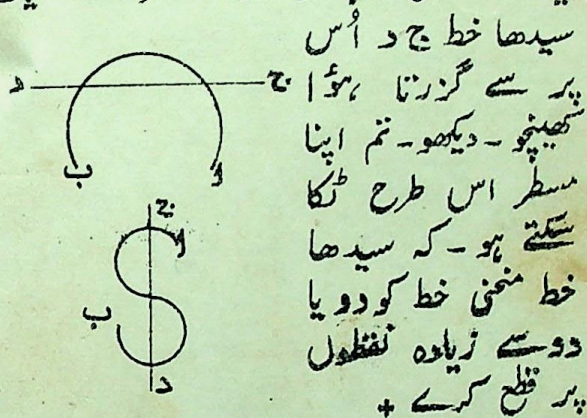 سیدھا خط ج د اُس
پر سے گزرتا ہؤا
کھینچو ۔ دیکھو ۔ تم اپنا
مسطر اس طرح ٹکا
سکتے ہو ۔ کہ سیدھا
خط منحنی خط کو دو یا
دو سے زیادہ نقطوں
پر قطع کرے +
ج د
ا ب
ج
ا
ب
د